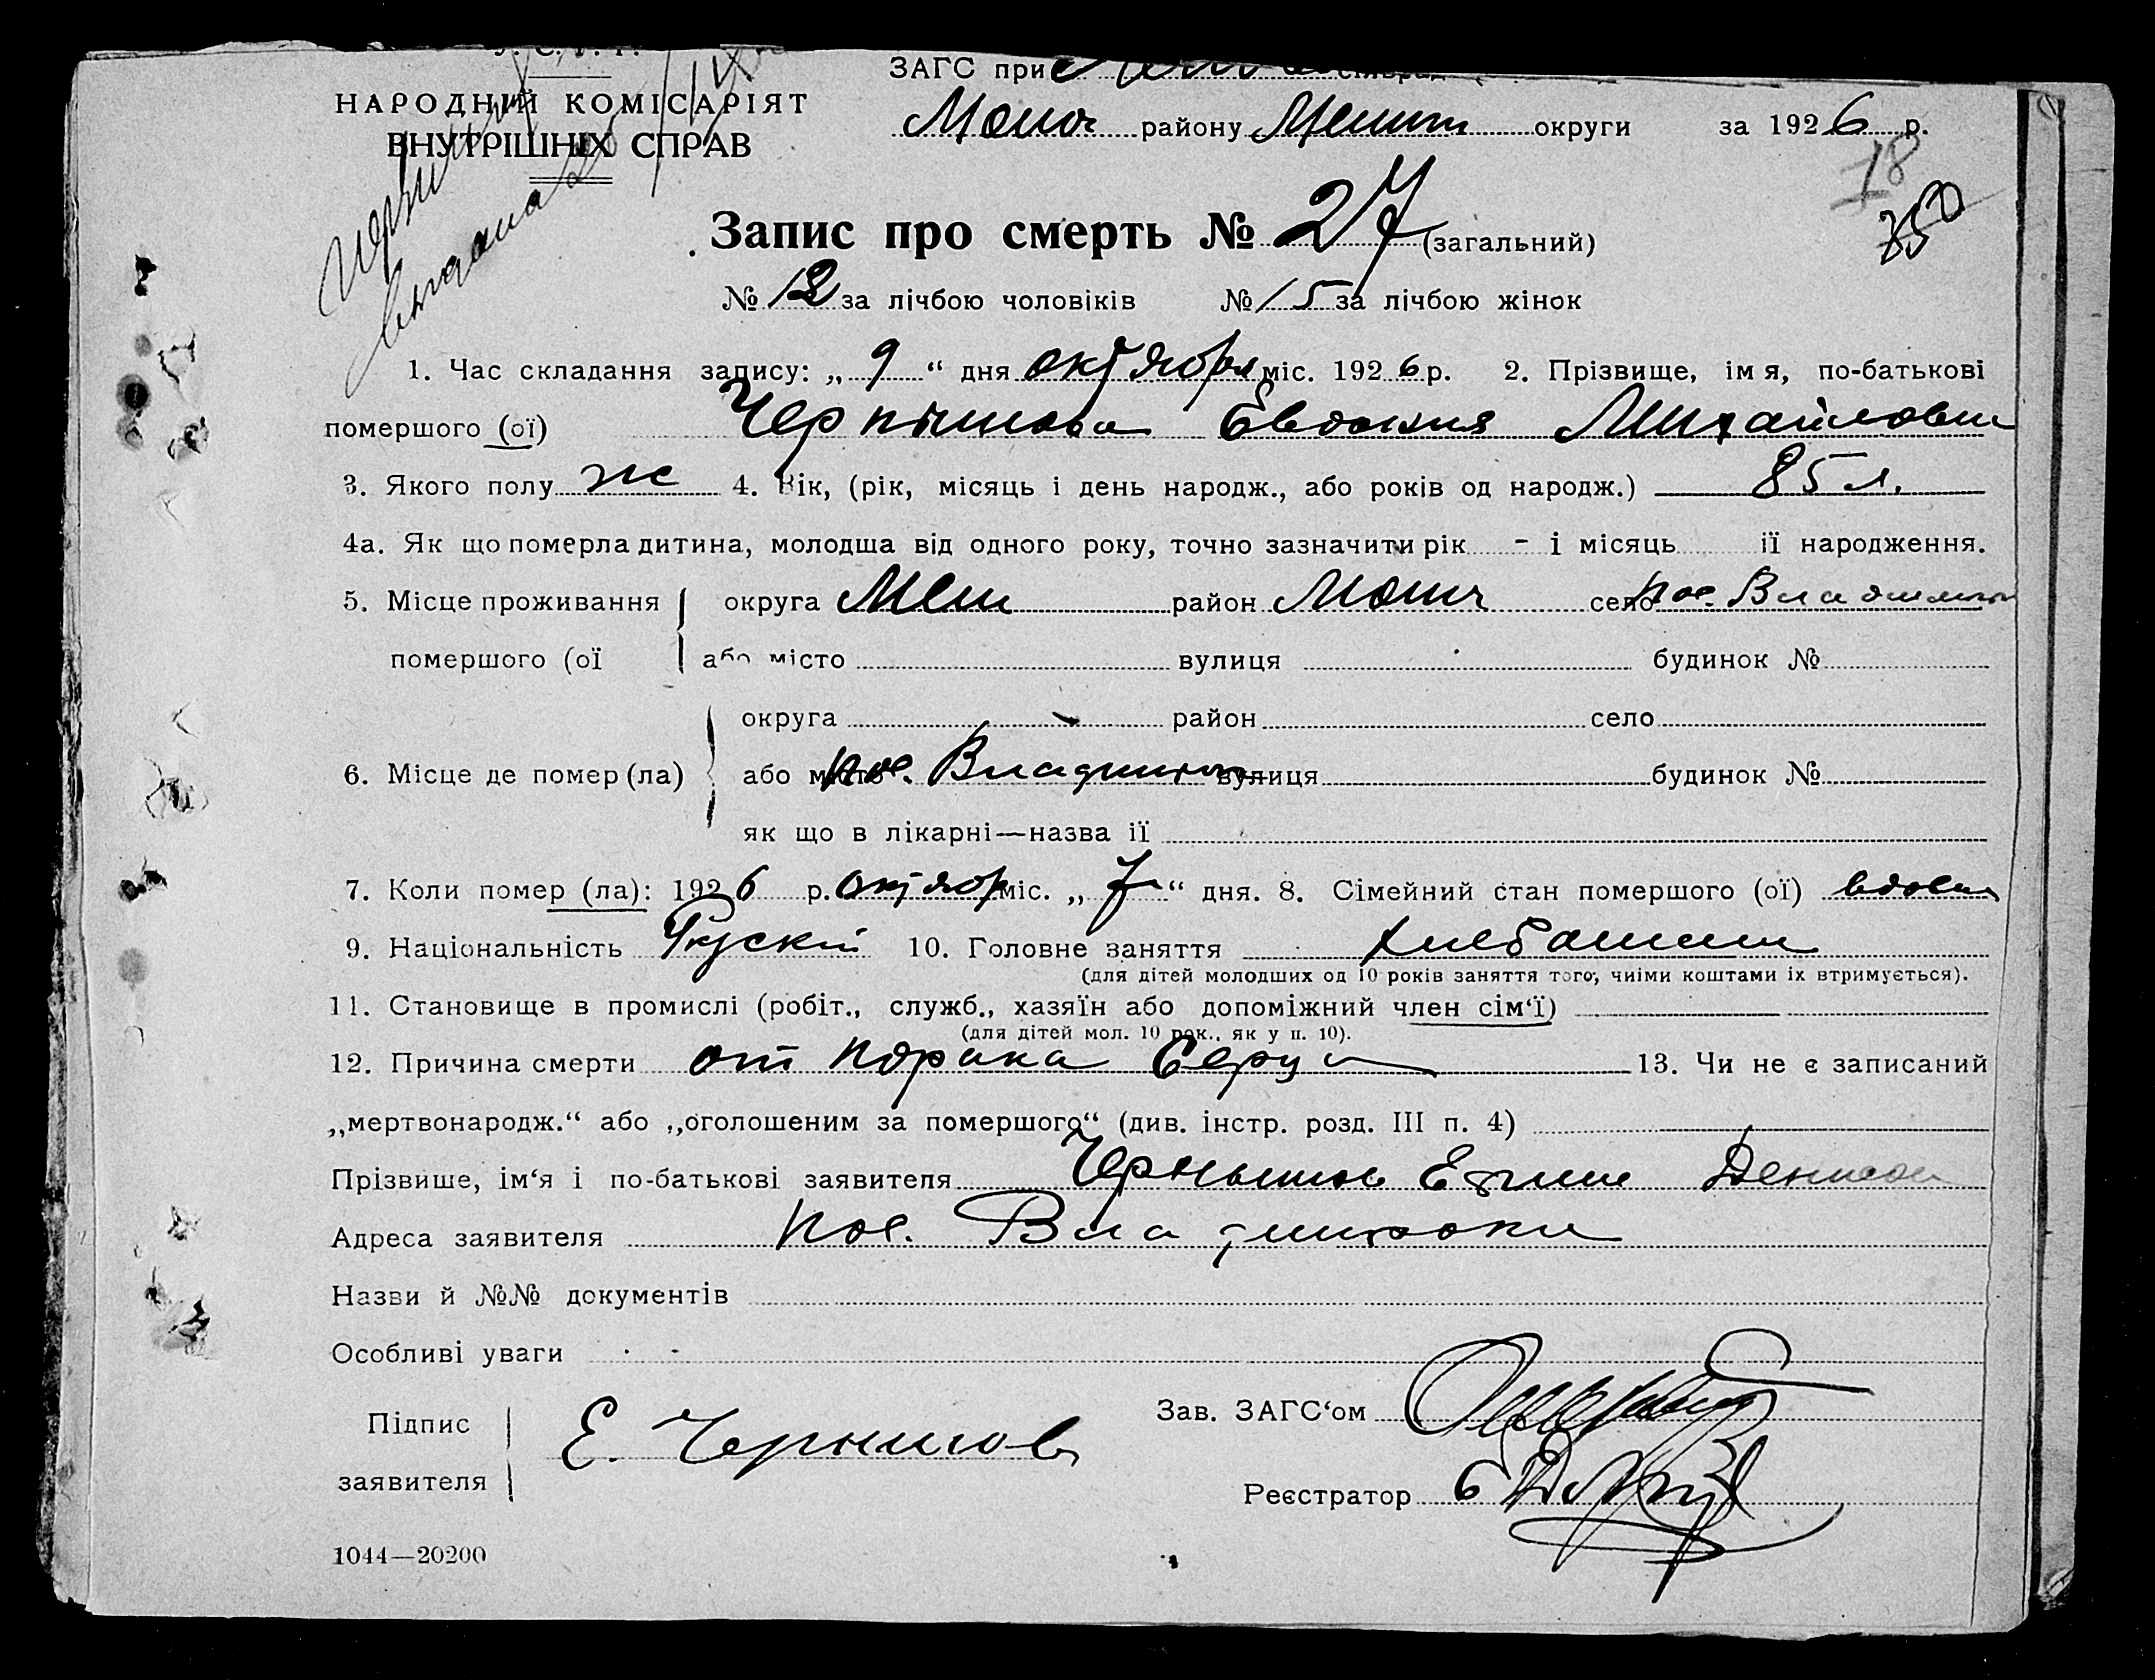 У. С. Р. Р.
НАРОДНІЙ КОМІСАРІЯТ
ВНУТРІШНІХ СПРАВ
ЗАГС при сільрад
району округи за 1926 р.
18
350
Запис про смерть № 27 (загальний)
№ 12 за лічбою чоловіків № 15 за лічбою жінок
1. Час складання запису: „ 9 “ дня октября міс. 1926 р. 2. Прізвище, імя, по-батькові
помершого (ої) Чернишова Евдокия Михайловна
3. Якого полу ж 4. Вік, (рік, місяць і день народж., або років од народж.) 85 л.
4а. Як що померла дитина, молодша від одного року, точно зазначити рік - і місяць її народження.
5. Місце проживання округа Мел район село пос.
помершого (ої або місто вулиця будинок №
округа район село
6. Місце де помер (ла) або місто пос. вулиця будинок №
як що в лікарні—назва її
7. Коли помер (ла): 1926 р. октябр міс. „ 7 “ дня. 8. Сімейний стан помершого (ої) вдова
9. Національність Руский 10. Головне заняття хлебопаш
(для дітей молодших од 10 років заняття того, чиїми коштами їх втримується).
11. Становище в промислі (робіт., служб., хазяїн або допоміжний член сім‘ї)
(для дітей мол. 10 рок., як у п. 10).
12. Причина смерти от порока Серца 13. Чи не є записаний
„мертвонародж.“ або „оголошеним за помершого“ (див. інстр. розд. III п. 4)
Прізвище, ім‘я і по-батькові заявителя Чернышов Ефим Денисов
Адреса заявителя пос.
Назви й №№ документів
Особливі уваги
Підпис
заявителя
Е. Чернишов
Зав. ЗАГС‘ом
Реєстратор
1044—20200